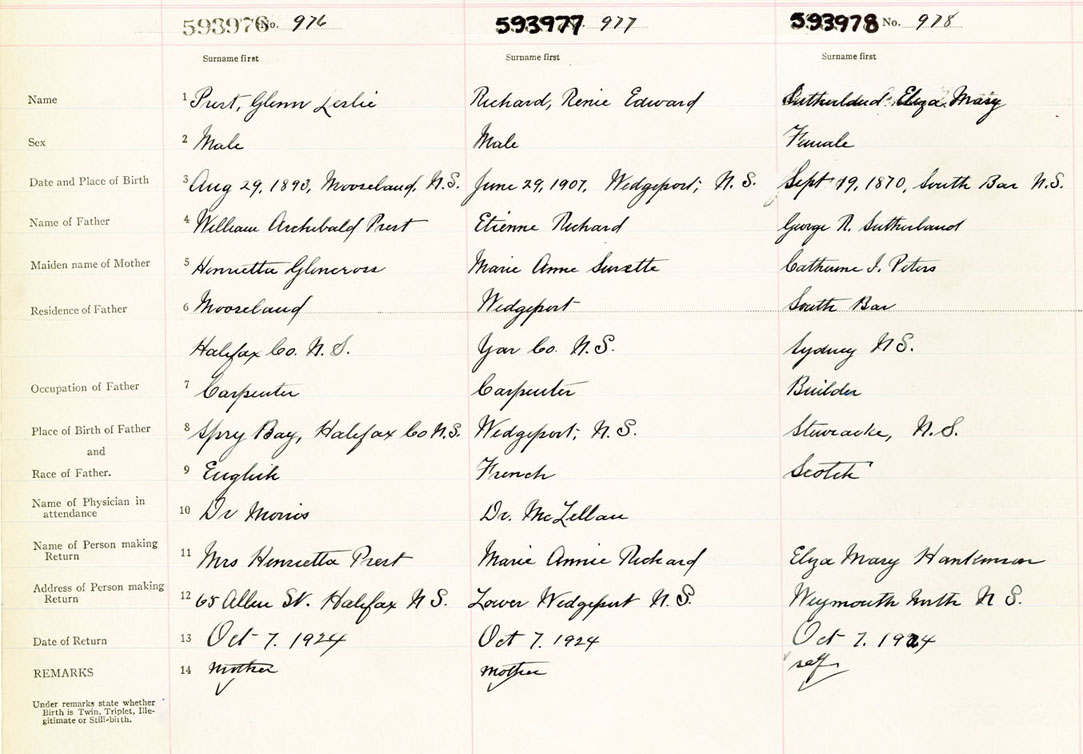 593976 No. 976 593977 No. 977 593978 No. 978
Surname first Surname first Surname first
Name 1 Prest, Glenn Leslie Richard, Renie Edward Sutherland Eliza Mary
Sex 2 Male Male Female
Date and Place of Birth 3 Aug 29, 1893, Mooseland, N.S. June 29, 1907, Wedgeport, N.S. Sept 19, 1870, South Bar N.S.
Name of Father 4 William Archibald Prest Etienne Richard George R. Sutherland
Maiden name of Mother 5 Henrietta Glencross Marie Anne Surette Catherine I. Peters
Residence of Father 6 Mooseland Wedgeport South Bar
Halifax Co. N.S. Yar Co. N.S. Sydney N.S.
Occupation of Father 7 Carpenter Carpenter Builder
Place of Birth of Father 8 Spry Bay, Halifax Co N.S. Wedgeport, N.S. Stewiacke, N.S.
and
Race of Father. 9 English French Scotch
Name of Physician in
attendance 10 Dr Morris Dr. McLellan
Name of Person making
Return 11 Mrs Henrietta Prest Marie Annie Richard Eliza Mary Hankinson
Address of Person making
Return 12 65 Allen St. Halifax N.S. Lower Wedgeport N.S. Weymouth North N.S.
Date of Return 13 Oct 7. 1924 Oct 7. 1924 Oct 7. 1924
REMARKS 14 mother mother self
Under remarks state whether
Birth is Twin, Triplet, Ille-
gitimate or Still-birth.